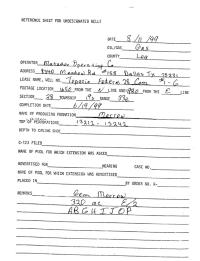 REFERENCE SHEET FOR UNDESIGNATED WELLS
DATE 8/11/99
OIL/GAS Gas
COUNTY Lea
OPERATOR Matador Operating Co
ADDRESS 8340 Meadow Rd #158 Dallas Tx 75231
LEASE NAME, WELL NO. Federal 28 Com #1 - G
FOOTAGE LOCATION FROM THE N LINE AND FROM THE E LINE
SECTION TOWNSHIP RANGE
COMPLETION DATE 6/19/99
NAME OF PRODUCING FORMATION Morrow
TOP OF PERFORATIONS 13212 - 13242
DEPTH TO CASING SHOE
C-123 FILED
NAME OF POOL FOR WHICH EXTENSION WAS ASKED
ADVERTISED FOR HEARING CASE NO.
NAME OF POOL FOR WHICH EXTENSION WAS ADVERTISED
PLACED IN BY ORDER NO. R-
REMARKS Morrow
320 ac E/2
ABGHIJOP